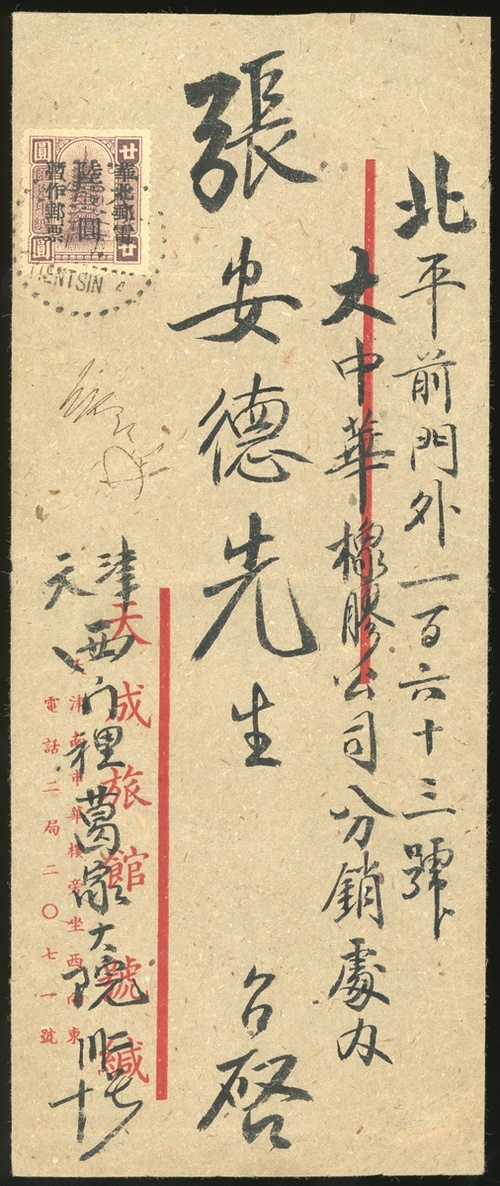 北平前門外一百六十三號
大中華橡膠公司分銷處內
張安德先生 台啓
天津西門裡葛家大院
天成旅館 號緘
電話二局二〇七一號
華北郵電
陸圓
暫作郵票
廿 圓
廿 圓
TIENTSIN